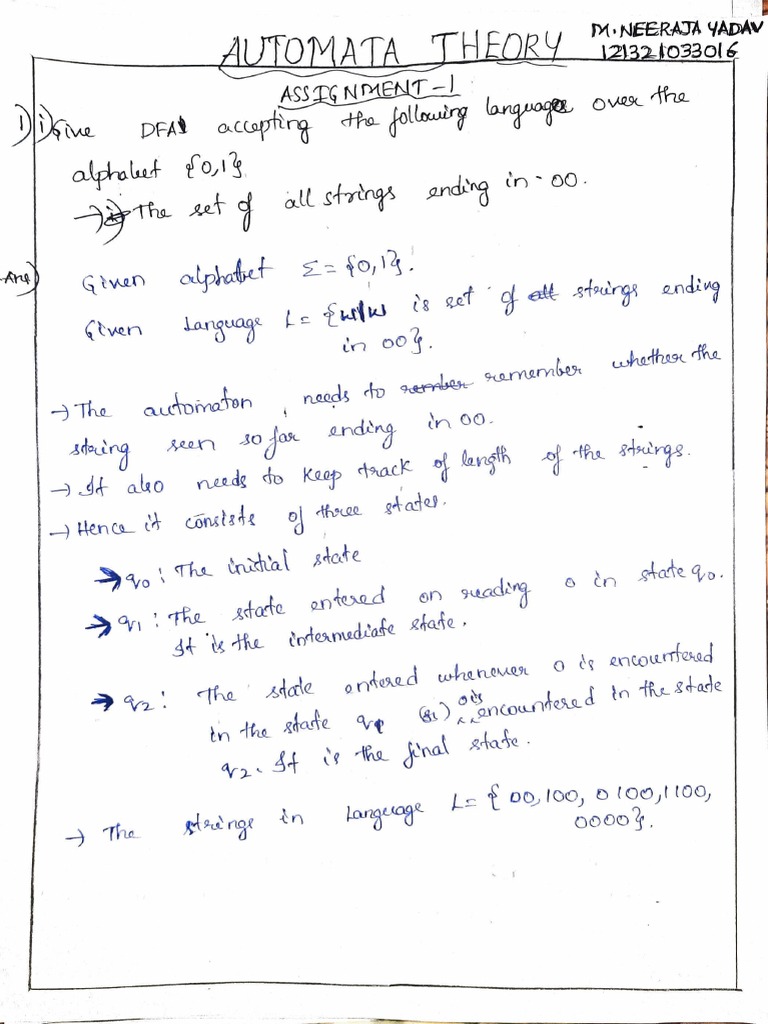 AUTOMATA THEORY
M. NEERAJA YADAV
121321033016
ASSIGNMENT-1
1) i) Give DFA accepting the following language over the
alphabet {0,1}
→ The set of all strings ending in 00.
Ans) Given alphabet Σ = {0,1}.
Given Language L = {w/w is set of strings ending
in 00}.
→ The automaton needs to remember whether the
string seen so far ending in 00.
→ It also needs to keep track of length of the strings.
→ Hence it consists of three states.
→ q0 : The initial state
→ q1 : The state entered on reading 0 in state q0.
It is the intermediate state.
→ q2 : The state entered whenever 0 is encountered
in the state q1 (or) 0 is encountered in the state
q2. It is the final state.
→ The strings in Language L = { 00, 100, 0100, 1100,
0000}.